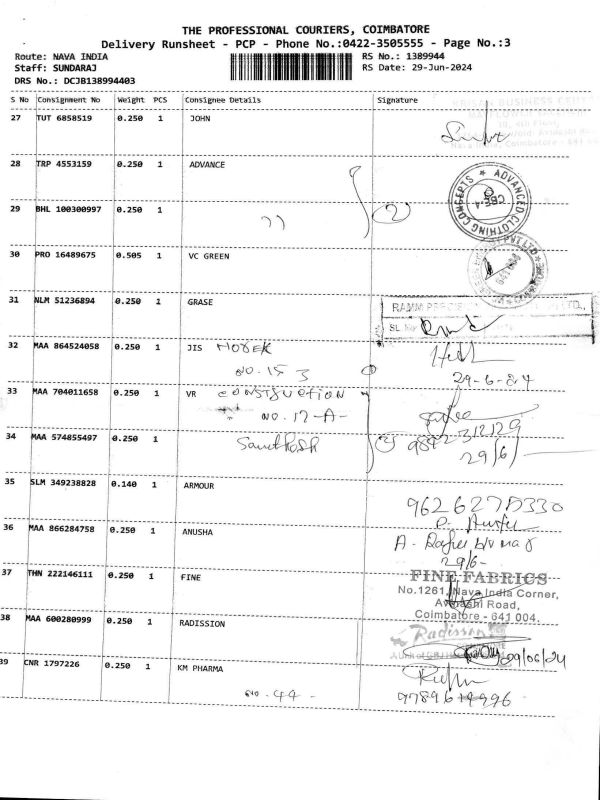 THE PROFESSIONAL COURIERS, COIMBATORE
Delivery Runsheet - PCP - Phone No.:0422-3505555 - Page No.:3
Route: NAVA INDIA
RS No.: 1389944
Staff: SUNDARAJ
RS Date: 29-Jun-2024
DRS No.: DCJB138994403
S No Consignment No Weight PCS Consignee Details Signature
27 TUT 6858519 0.250 1 JOHN
28 TRP 4553159 0.250 1 ADVANCE
ADVANCED CLOTHING CONCEPTS
CBE-4
29 BHL 100300997 0.250 1
2
30 PRO 16489675 0.505 1 VC GREEN
31 NLM 51236894 0.250 1 GRASE
32 MAA 864524058 0.250 1 JIS
NO. 15 3
29-6-24
33 MAA 704011658 0.250 1 VR
NO. 12-A-
34 MAA 574855497 0.250 1 Santhosh
29/6/
35 SLM 349238828 0.140 1 ARMOUR
36 MAA 866284758 0.250 1 ANUSHA
29/6-
37 THN 222146111 0.250 1 FINE
FINE FABRICS
No.1261, Nava India Corner,
Avinashi Road,
Coimbatore - 641 004.
38 MAA 600280999 0.250 1 RADISSION
Radisson
29/06/24
39 CNR 1797226 0.250 1 KM PHARMA
NO. 44 -